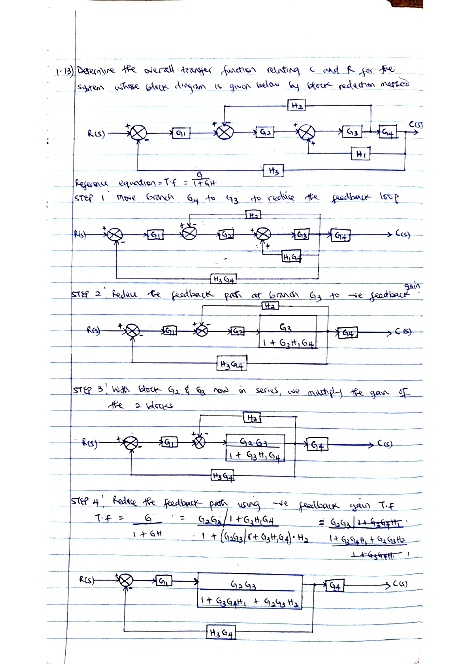 1.13) Determine the overall transfer function relating C and R for the
system whose block diagram is given below by block reduction method
H2
R(s) + - G1 + - G2 + - G3 G4 C(s)
H1
H3
Reference equation = T.f = G / 1+GH
STEP 1 Move branch G4 to G3 to reduce the feedback loop
H2
R(s) + - G1 - G2 + G3 G4 C(s)
H1G4
H3G4
STEP 2: Reduce the feedback path at branch G3 to -ve feedback gain
H2
R(s) + - G1 + - G2 G3 / 1 + G3H1G4 G4 C(s)
H3G4
STEP 3: With block G2 & G3 now in series, we multiply the gain of
the 2 blocks
H2
R(s) + - G1 + - G2G3 / 1 + G3H1G4 G4 C(s)
H3G4
STEP 4: Reduce the feedback path using -ve feedback gain T.f
T.f = G = G2G3/1+G3H1G4 = G2G3/1+G3G4H1
1+GH 1 + (G2G3/1+G3H1G4)·H2 1+G3G4H1 + G2G3H2
1+G3G4H1
R(s) + - G1 G2G3 G4 C(s)
1 + G3G4H1 + G2G3H2
H3G4